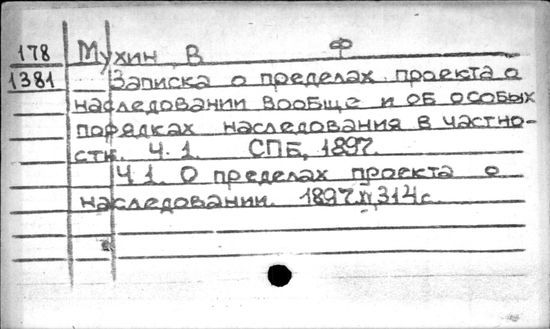 178 Мухин, В Ф
1381 Записка о пределах проекта о
наследовании вообще и об особых
порядках наследования в частно-
сти. Ч. 1. СПБ, 1897.
Ч 1. О пределах проекта о
наследовании. 1897. 314 с.